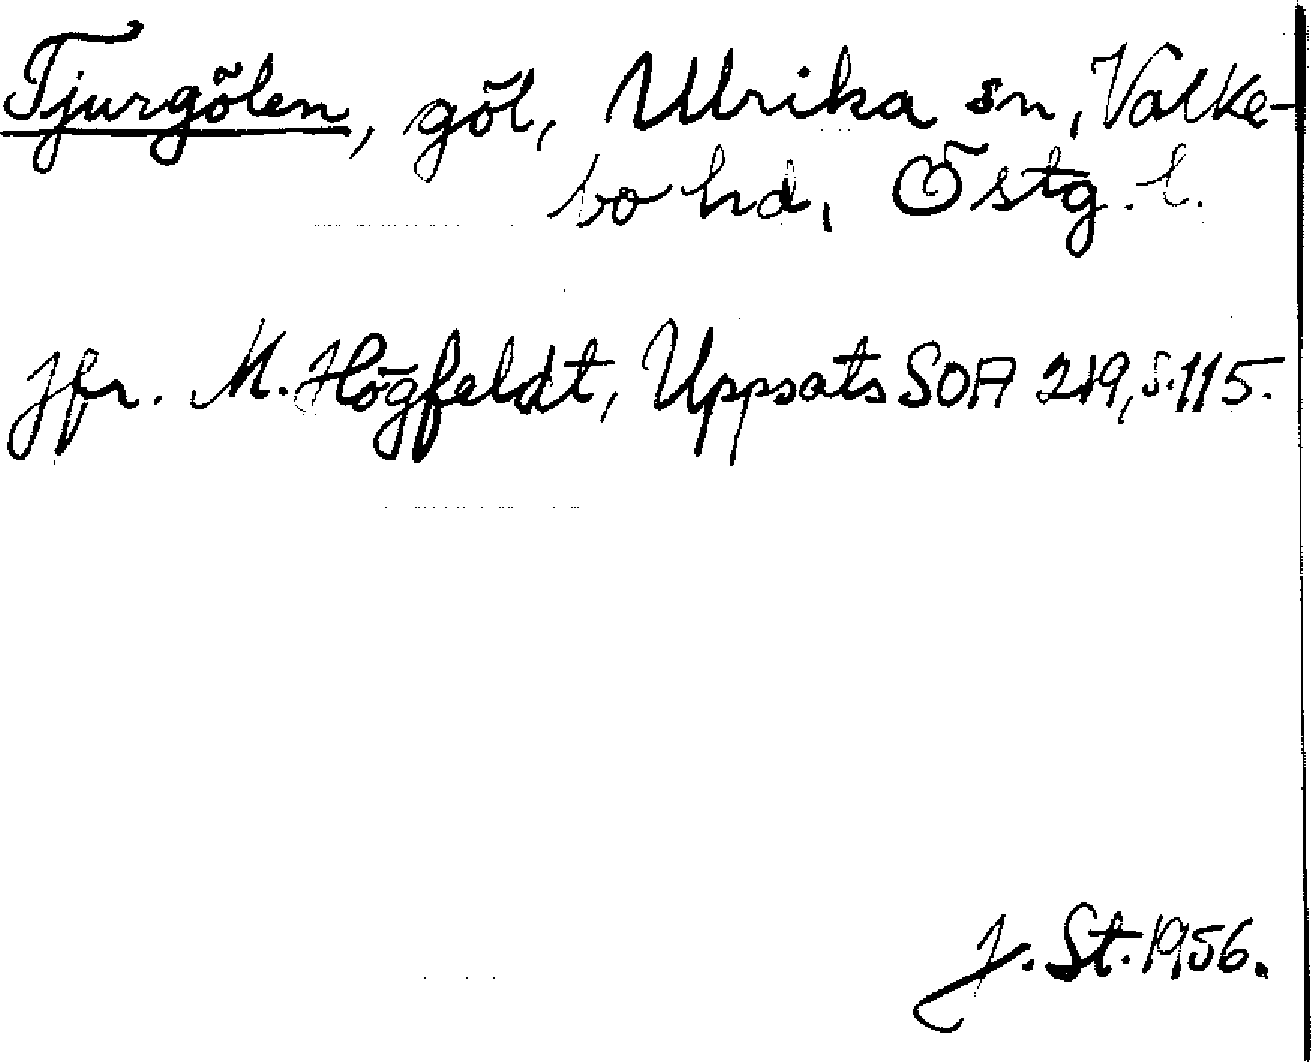 Tjurgölen, göl, Ulrika sn, Valke-
bo hd, Östg. l.
Jfr. M. Högfeldt, Uppsats SOA 219, s. 115.
J. St. 1956.